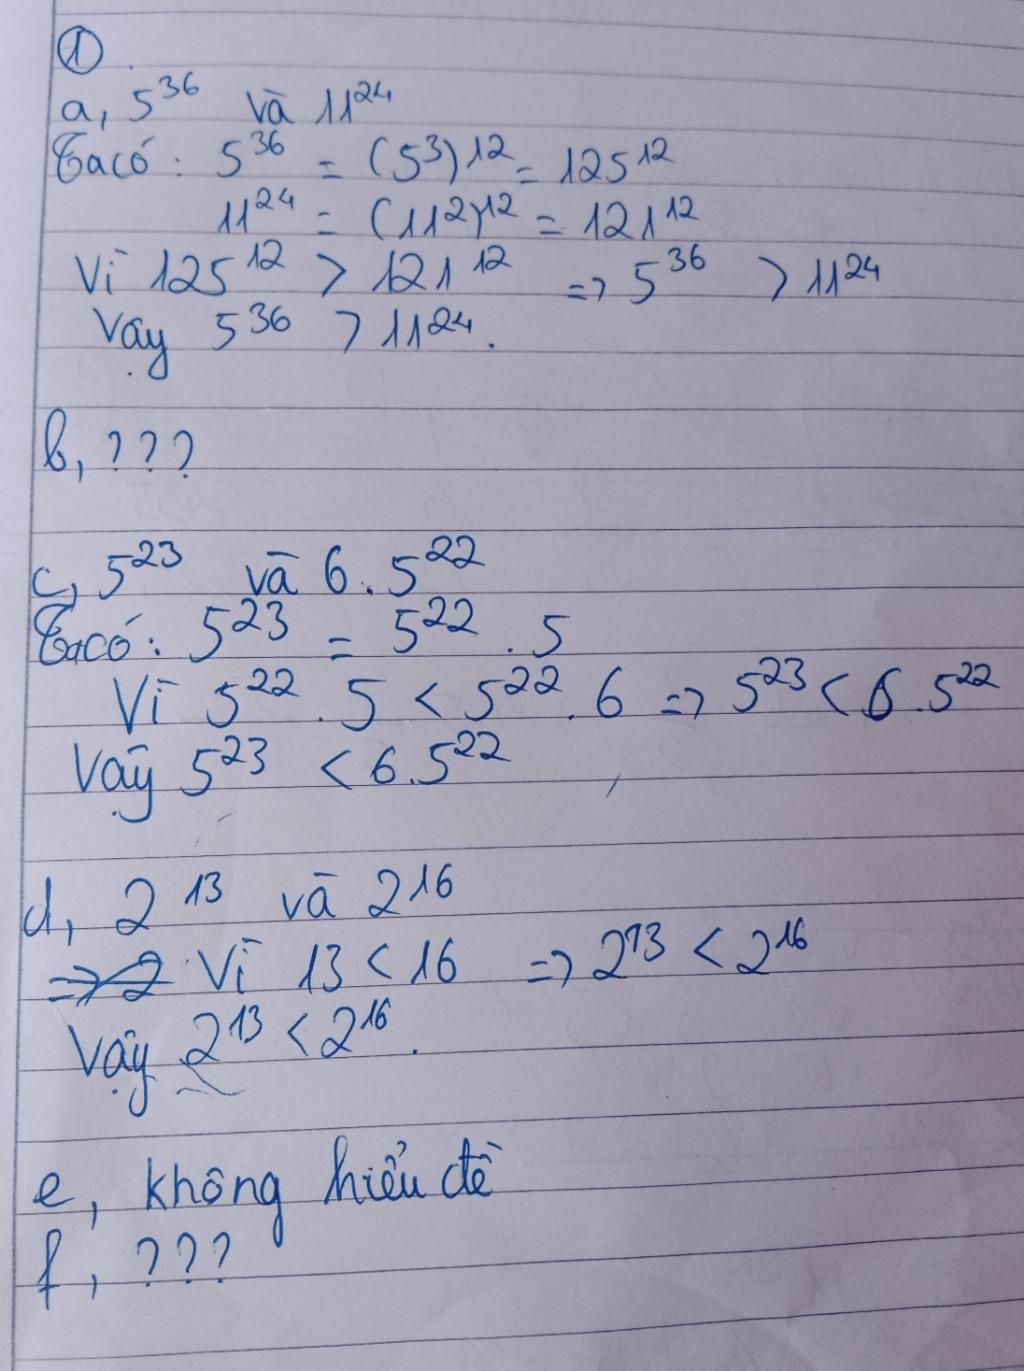 ①
a, 5³⁶ và 11²⁴
Ta có: 5³⁶ = (5³)¹² = 125¹²
11²⁴ = (11²)¹² = 121¹²
Vì 125¹² > 121¹² => 5³⁶ > 11²⁴
Vậy 5³⁶ > 11²⁴.
b, ???
c, 5²³ và 6.5²²
Ta có: 5²³ = 5²².5
Vì 5²².5 < 5²².6 => 5²³ < 6.5²²
Vậy 5²³ < 6.5²²
d, 2¹³ và 2¹⁶
=> 2 Vì 13 < 16 => 2¹³ < 2¹⁶
Vậy 2¹³ < 2¹⁶.
e, không hiểu đề
f, ???